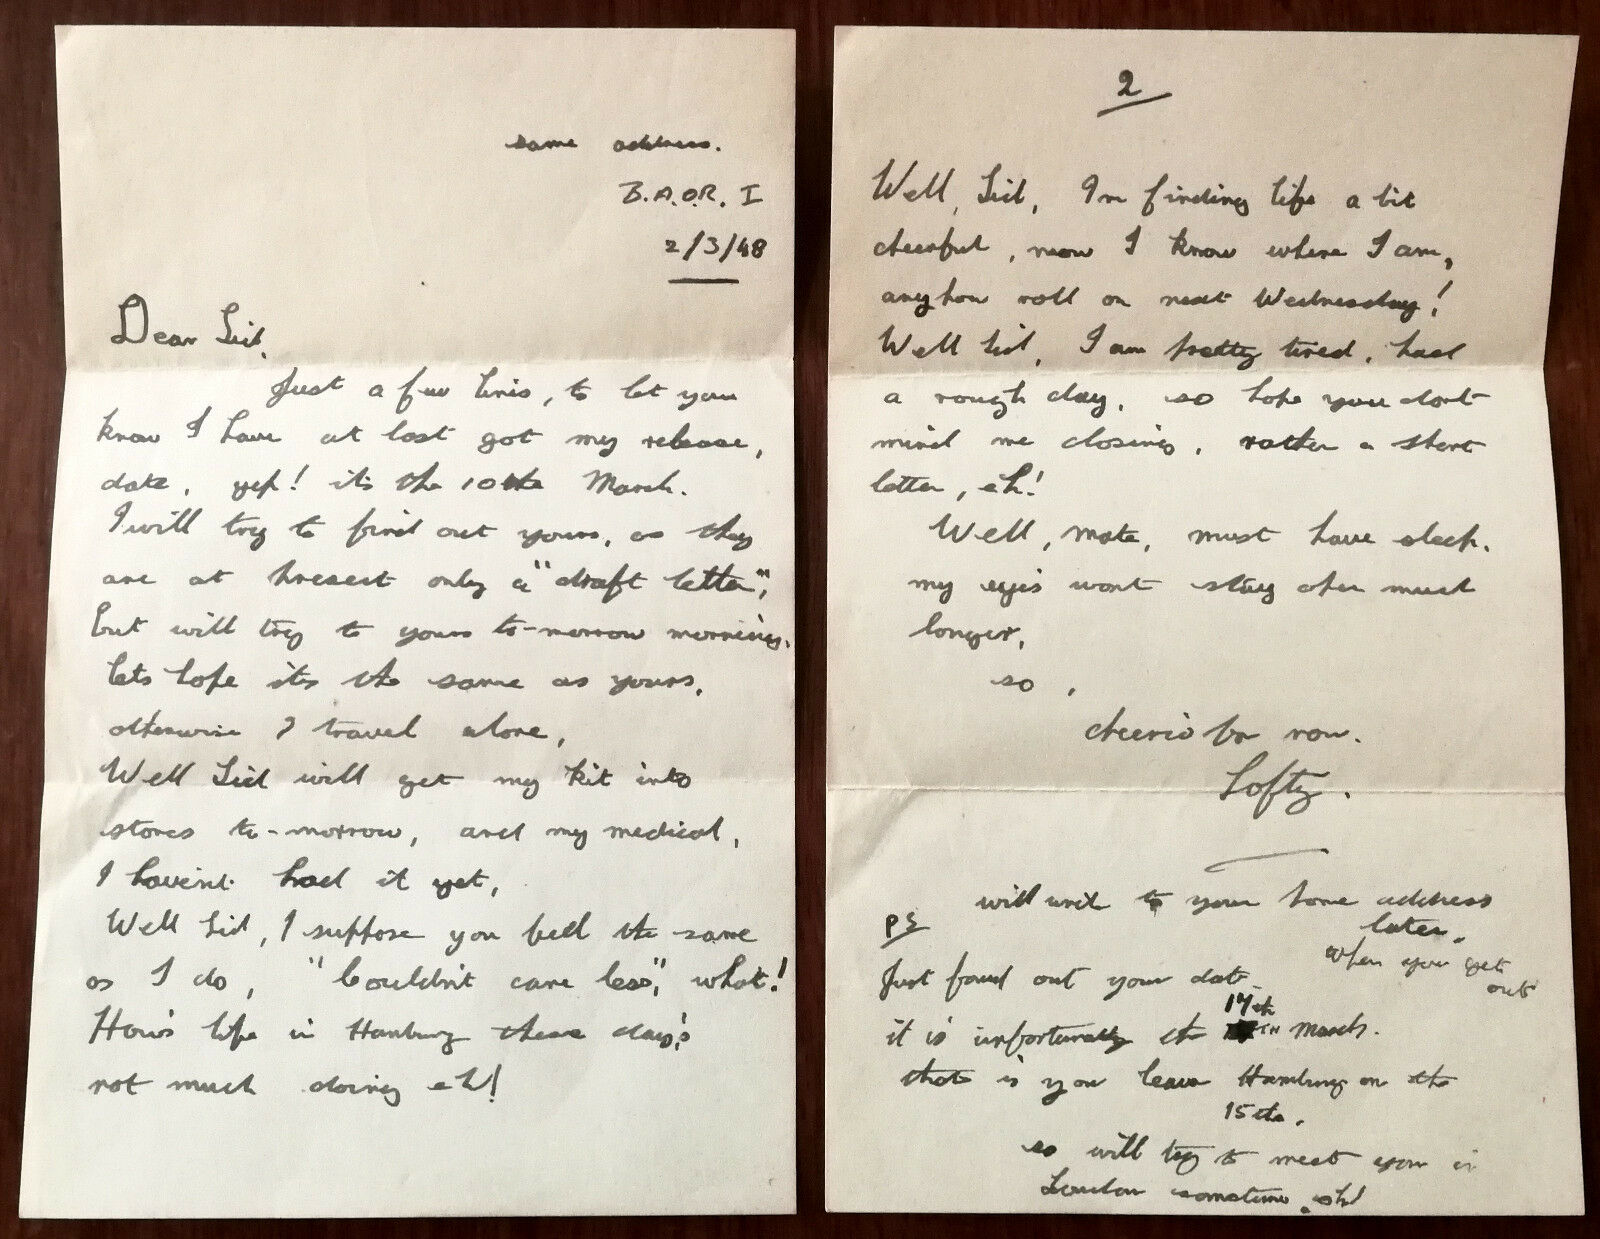 same address.
B.A.O.R. I
2/3/48
Dear Sid,
Just a few lines, to let you
know I have at last got my release,
date, yep! it's the 10the March.
I will try to find out yours, as they
are at present only a "draft letter",
but will try to yours to-morrow morning.
lets hope its the same as yours,
otherwise I travel alone,
Well Sid will get my kit into
stores to-morrow, and my medical,
I havent had it yet,
Well Sid, I suppose you feel the same
as I do, "Couldn't care less", what!
How's life in Hamburg these day's
not much doing eh!
2
Well, Sid, Im finding life a bit
cheerful, now I know where I am,
anyhow roll on next Wednesday!
Well Sid, I am pretty tired, had
a rough day, so hope you dont
mind me closing, rather a short
letter, eh!
Well, mate, must have sleep.
my eyes wont stay open much
longer,
so,
cheerio for now.
Lofty.
will write to your home address
later.
when you get
out
PS
Just found out your date
17th
it is unfortunatly the TH March.
that is you leave Hamburg on the
15the.
so will try to meet you in
London sometime, eh!